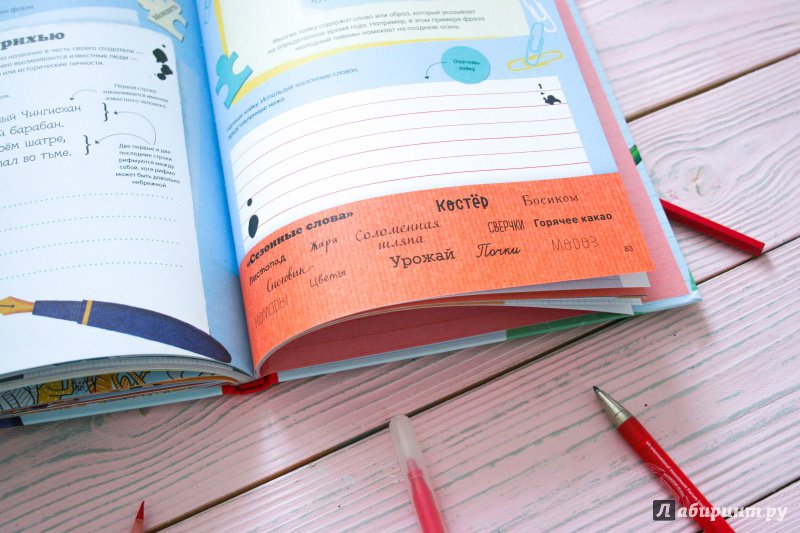 их форм,
рихью
ла название в честь своего создателя —
ней высмеиваются известные люди —
или исторические личности.
Первая строка
заканчивается именем
известного человека.
ный Чингисхан
й барабан.
оём шатре,
ал во тьме.
Две первые и две
последние строки
рифмуются между
собой, хотя рифма
может быть довольно
небрежной.
Многие хайку содержат слово или образ, который указывает
на определённое время года. Например, в этом примере фраза
«холодный ливень» намекает на позднюю осень.
Озаглавь
хайку
хайку. Используй «сезонные слова»,
представленные ниже.
«Сезонные слова»
Костёр
Босиком
Листопад
Жара
Соломенная
шляпа
СВЕРЧКИ
Горячее какао
Снеговик
Цветы
Урожай
Почки
Мороз
Комары
83
Лабиринт.ру